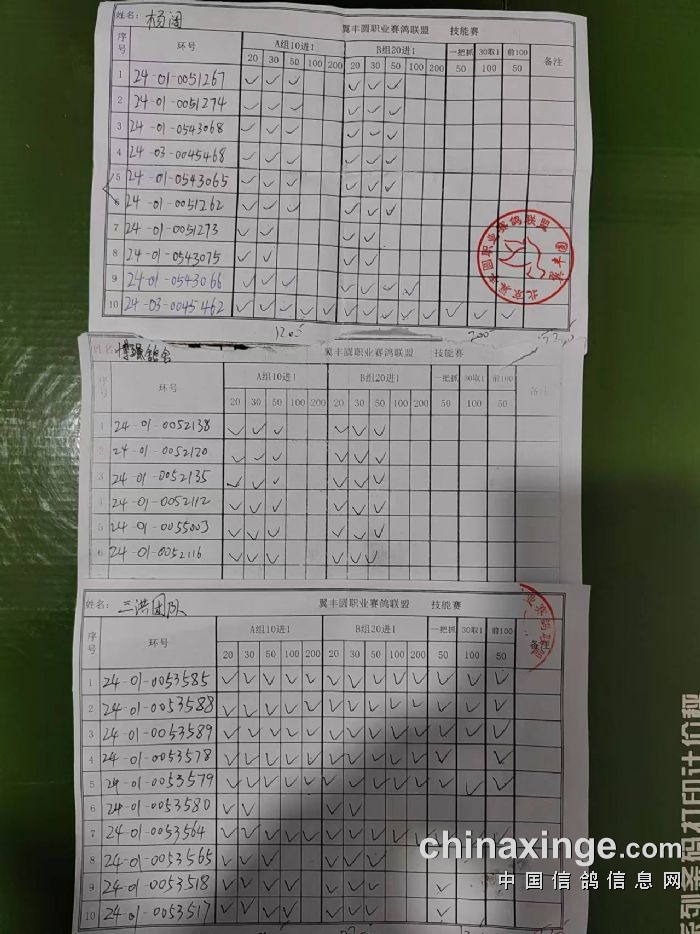 姓名: 杨阔 翼丰圆职业赛鸽联盟 技能赛
序号 环号 A组10进1 B组20进1 一把抓 30取1 前100 备注
20 30 50 100 200 20 30 50 100 200 50 100 50
1 24-01-0051267 ✓ ✓ ✓ ✓ ✓ ✓
2 24-01-0051274 ✓ ✓ ✓ ✓ ✓ ✓
3 24-01-0543068 ✓ ✓ ✓ ✓ ✓ ✓
4 24-03-0045468 ✓ ✓ ✓ ✓ ✓ ✓
5 24-01-0543065 ✓ ✓ ✓ ✓ ✓ ✓
6 24-01-0051262 ✓ ✓ ✓ ✓ ✓ ✓
7 24-01-0051273 ✓ ✓ ✓ ✓
8 24-01-0543075 ✓ ✓ ✓ ✓
9 24-01-0543066 ✓ ✓ ✓ ✓ ✓ ✓ ✓
10 24-03-0045462 ✓ ✓ ✓ ✓ ✓ ✓ ✓ ✓ ✓ ✓ ✓ ✓ ✓
北京翼丰圆职业赛鸽联盟
姓名: 博强鸽舍 翼丰圆职业赛鸽联盟 技能赛
序号 环号 A组10进1 B组20进1 一把抓 30取1 前100 备注
20 30 50 100 200 20 30 50 100 200 50 100 50
1 24-01-0052138 ✓ ✓ ✓ ✓ ✓ ✓
2 24-01-0052120 ✓ ✓ ✓ ✓ ✓ ✓
3 24-01-0052135 ✓ ✓ ✓ ✓ ✓ ✓
4 24-01-0052112 ✓ ✓ ✓ ✓ ✓ ✓
5 24-01-0055003 ✓ ✓ ✓ ✓ ✓ ✓
6 24-01-0052116 ✓ ✓ ✓ ✓ ✓ ✓
姓名: 三洪团队 翼丰圆职业赛鸽联盟 技能赛
序号 环号 A组10进1 B组20进1 一把抓 30取1 前100 备注
20 30 50 100 200 20 30 50 100 200 50 100 50
1 24-01-0053585 ✓ ✓ ✓ ✓ ✓ ✓ ✓ ✓ ✓ ✓ ✓ ✓ ✓
2 24-01-0053588 ✓ ✓ ✓ ✓ ✓ ✓ ✓ ✓ ✓ ✓ ✓ ✓ ✓
3 24-01-0053589 ✓ ✓ ✓ ✓ ✓ ✓ ✓ ✓ ✓ ✓ ✓ ✓ ✓
4 24-01-0053578 ✓ ✓ ✓ ✓ ✓ ✓ ✓ ✓ ✓ ✓ ✓ ✓
5 24-01-0053579 ✓ ✓ ✓ ✓ ✓ ✓ ✓ ✓ ✓ ✓ ✓ ✓ ✓
6 24-01-0053580 ✓ ✓ ✓ ✓
7 24-01-0053564
8 24-01-0053565
9 24-01-0053518
10 24-01-0053517
chinaxinge.com
中国信鸽信息网
系列条码打印计价秤